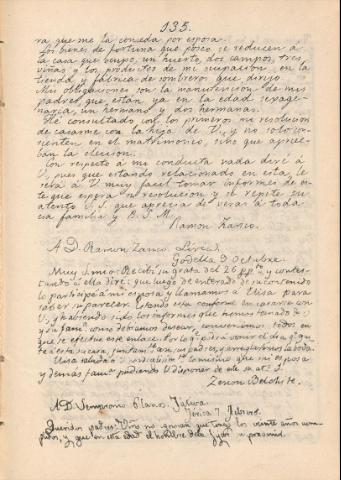 135.
ra que me la conceda por esposa.
Los bienes de fortuna que poseo se reducen á
la casa que ocupo, un huerto, dos campos, tres
viñas y los productos de mi ocupación, en la
tienda y fábrica de sombreros que dirijo.
Mis obligaciones son la manutención de mis
padres, que están ya en la edad sexage-
naria, un hermano y dos hermanas.
He consultado con los primeros mi resolución
de casarme con la hija de V., y no solo con-
sienten en el matrimonio, sino que aprue-
ban la elección.
Con respecto á mi conducta nada diré á
V., pues que estando relacionado en esta, le
será á V. muy facil tomar informes de es-
te que espera su resolución y se repite su
atento S. S. que aprecia de veras á toda
esa familia y B. S. M.
Ramon Zanco.
A D. Ramon Zanco. Liria.
Godella 9 Octubre.
Muy S. mio: Recibí su grata del 26 y contes-
tando á ella diré: que luego de enterado de su contenido
lo participé á mi esposa y llamamos á Elisa para
saber su parecer. Estando esta conforme en casarse con
V., y habiendo sido los informes que hemos tomado de V.
y su fama como debiamos desear, convenimos todos en
que se efectue este enlace. Por lo que podrá venir el dia que gus-
te á esta su casa, juntam.te con sus padres, y arreglaremos la boda.
Elisa saluda á V. lo mismo que mi esposa
y demás fam.a pudiendo V. disponer de este su at.o S.
Zenon Belchite.
A D. Sempronio Plano. Jativa.
Jérica 7 Febrero.
Queridos padres: Vds. no ignoran que tengo los veinte años cum-
plidos, y que en esta edad el hombre debe fijar su porvenir.